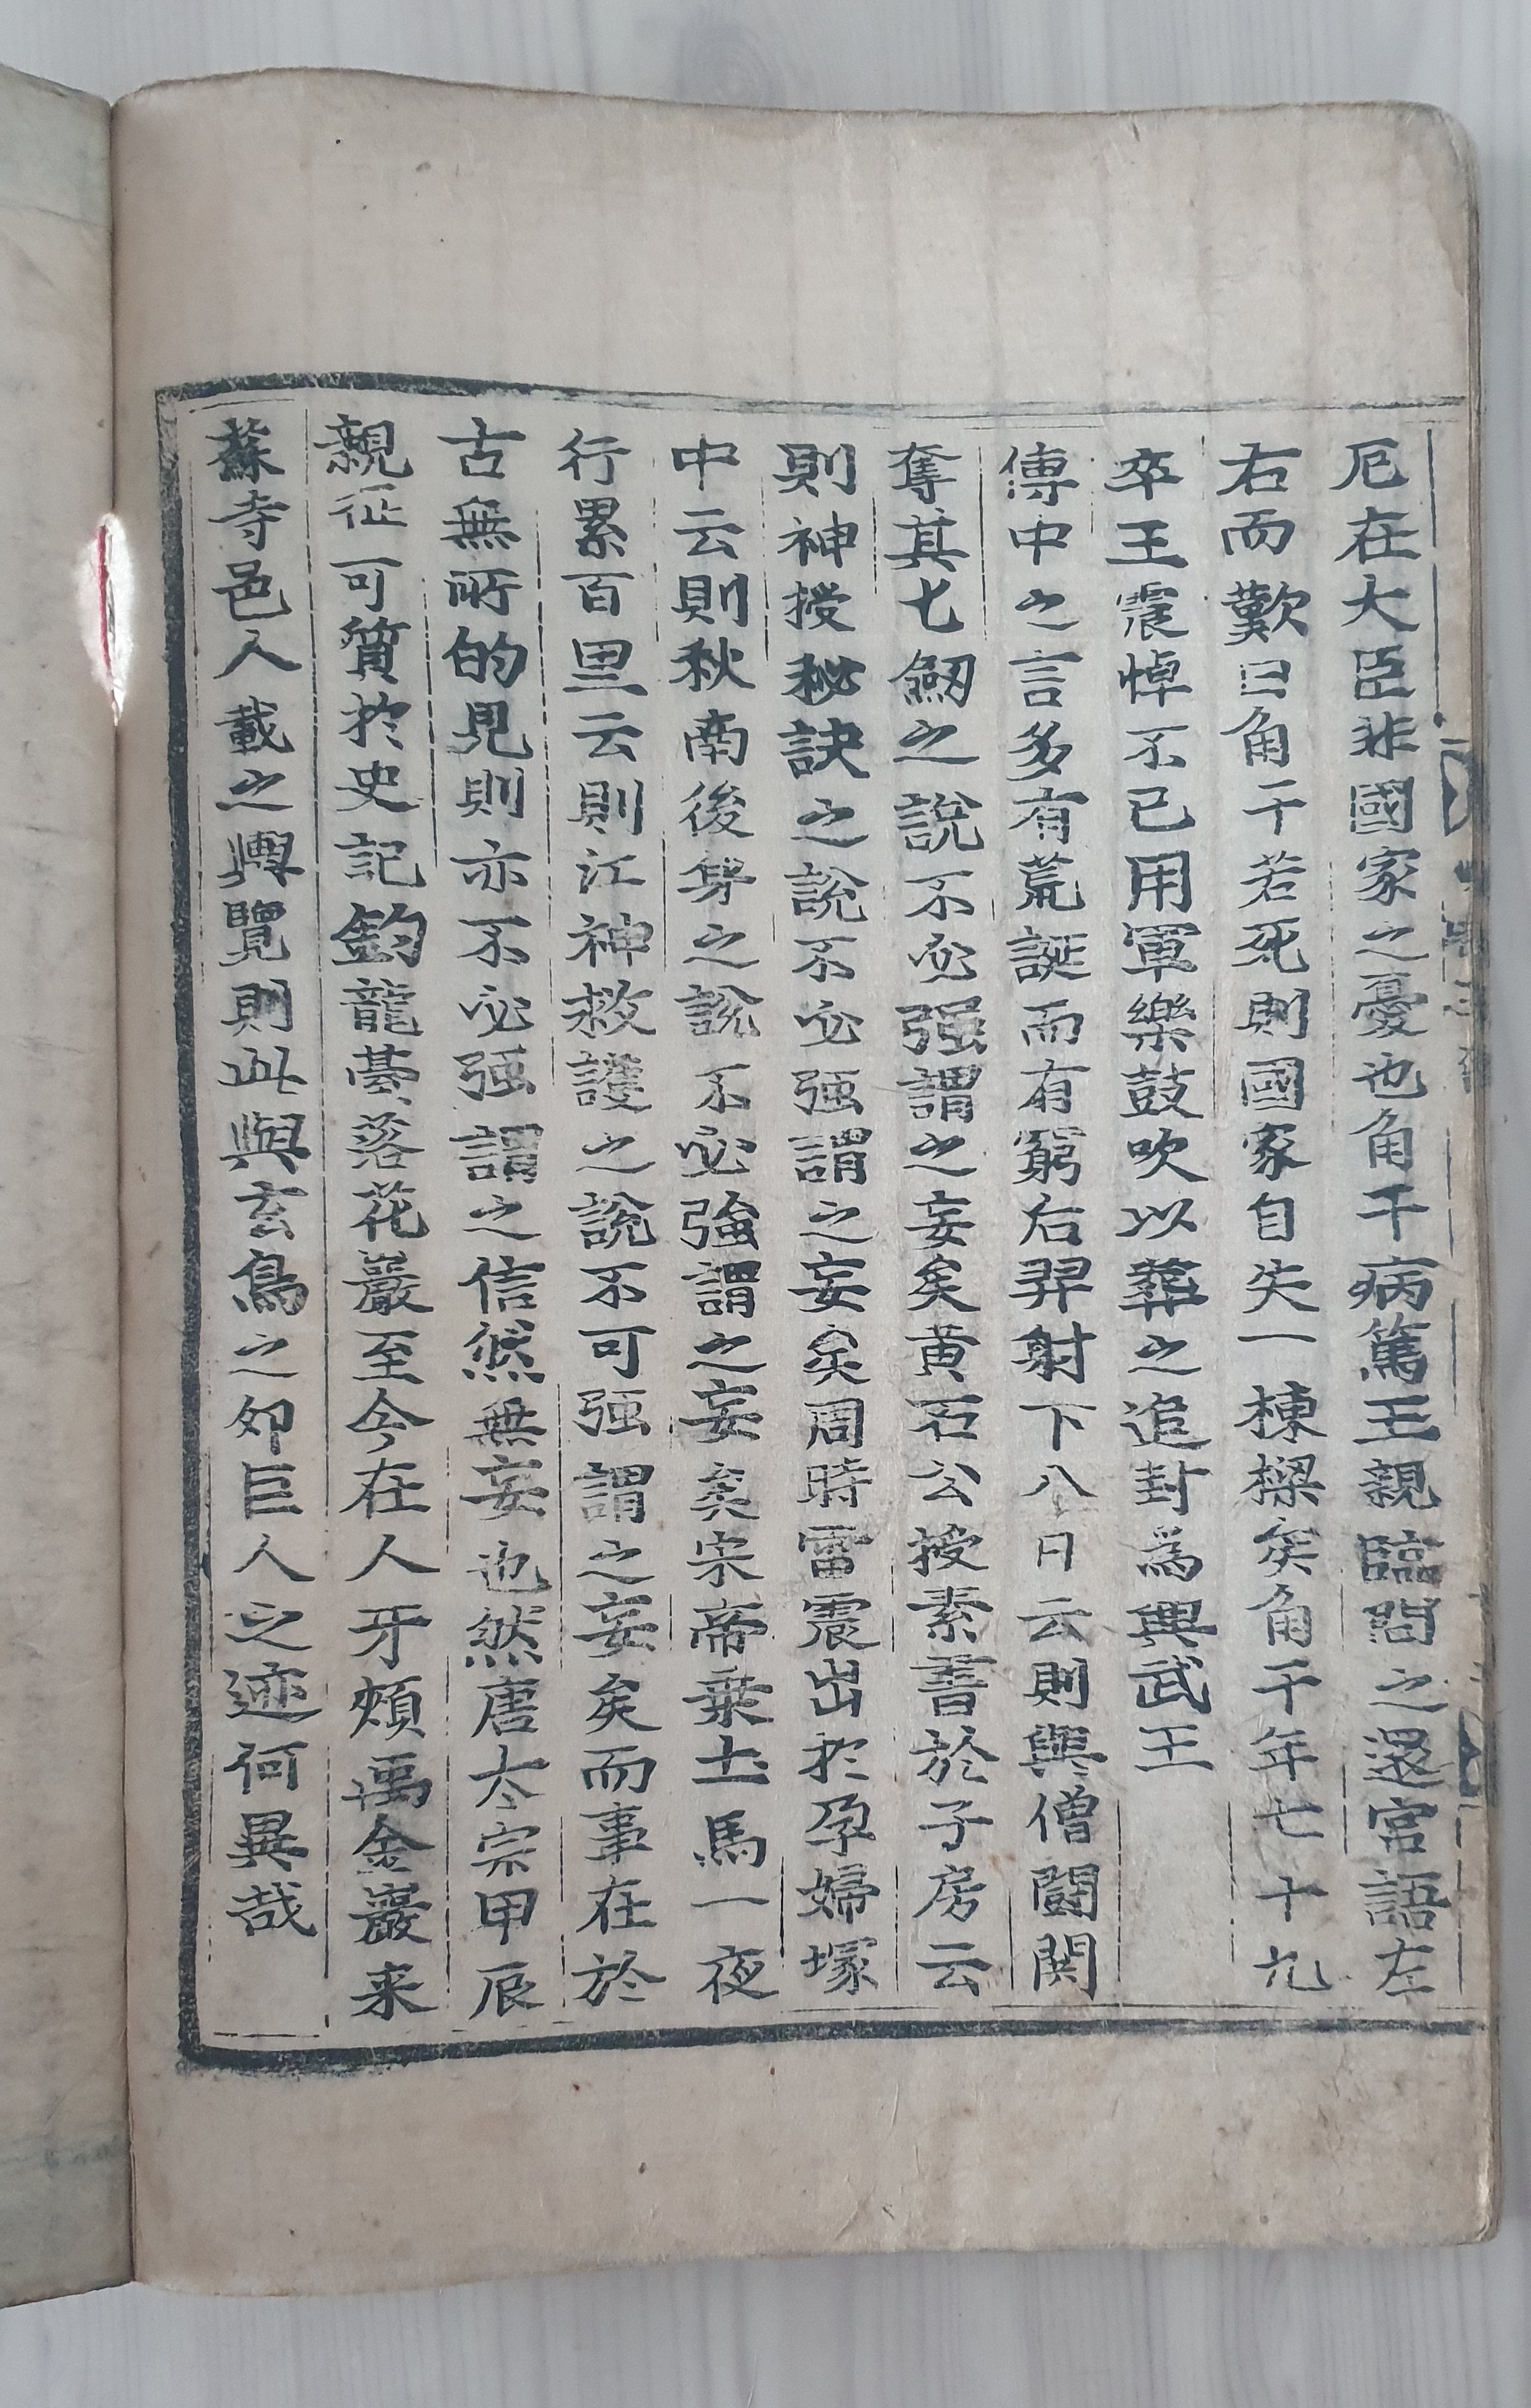 厄在大臣非國家之憂也角干病篤王親臨問之還宮語左
右而歎曰角干若死則國家自失一棟樑矣角干年七十九
卒王震悼不已用軍樂鼓吹以葬之追封爲興武王
傳中之言多有荒誕而有窮后羿射下八日云則與僧闘関
奪其七劒之說不必强謂之妄矣黄石公授素書於子房云
則神授秘訣之說不必强謂之妄矣周時雷震出於孕婦塚
中云則秋南後身之說不必強謂之妄矣宋帝乗土馬一夜
行累百里云則江神救護之說不可强謂之妄矣而事在於
古無所的見則亦不必强謂之信然無妄也然唐太宗甲辰
親征可質於史記釣龍臺落花巖至今在人牙頰萬金巖来
蘇寺邑人載之輿覽則此與玄鳥之卵巨人之迹何異哉